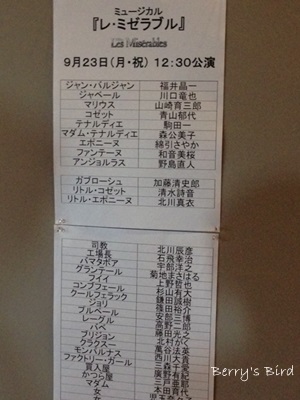 ミュージカル
『レ・ミゼラブル』
Les Misérables
9月23日(月・祝) 12:30公演
ジャン・バルジャン 福井晶一
ジャベール 川口竜也
マリウス 山崎育三郎
コゼット 青山郁代
テナルディエ 駒田一
マダム・テナルディエ 森公美子
エポニーヌ 綿引さやか
ファンテーヌ 和音美桜
アンジョルラス 野島直人
ガブローシュ 加藤清史郎
リトル・コゼット 清水詩音
リトル・エポニーヌ 北川真衣
司教 北川辰彦
工場長 石飛幸治
バマタボア 宇部洋之
グランテール 菊地まさはる
フイイ 上野哲也
コンブフェール 杉山有大
クールフェラック 鎌田誠樹
ジョリ 篠田裕介
プルベール 安部誠司
レーグル 高野二郎
バベ 藤田光之
ブリジョン 北村がく
クラクスー 萬谷法英
モンパルナス
ファクトリー・ガール
買入屋
かつら屋
マダム
Berry's Bird